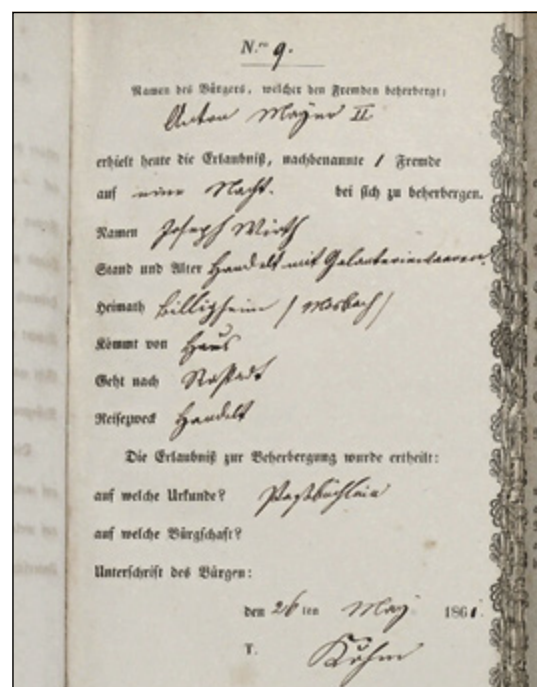 N.ro 9.
Namen des Bürgers, welcher den Fremden beherbergt:
Anton Mayer II
erhielt heute die Erlaubniß, nachbenannte 1 Fremde
auf eine Nacht. bei sich zu beherbergen.
Namen Joseph Wirth
Stand und Alter Handelt mit Galanteriewaaren
Heimath Billigheim / Mosbach /
Kömmt von Haus
Geht nach Rastadt
Reisezweck Handelt
Die Erlaubniß zur Beherbergung wurde ertheilt:
auf welche Urkunde? Paßbüchlein
auf welche Bürgschaft?
Unterschrift des Bürgen:
den 26 ten May 1861.
T.